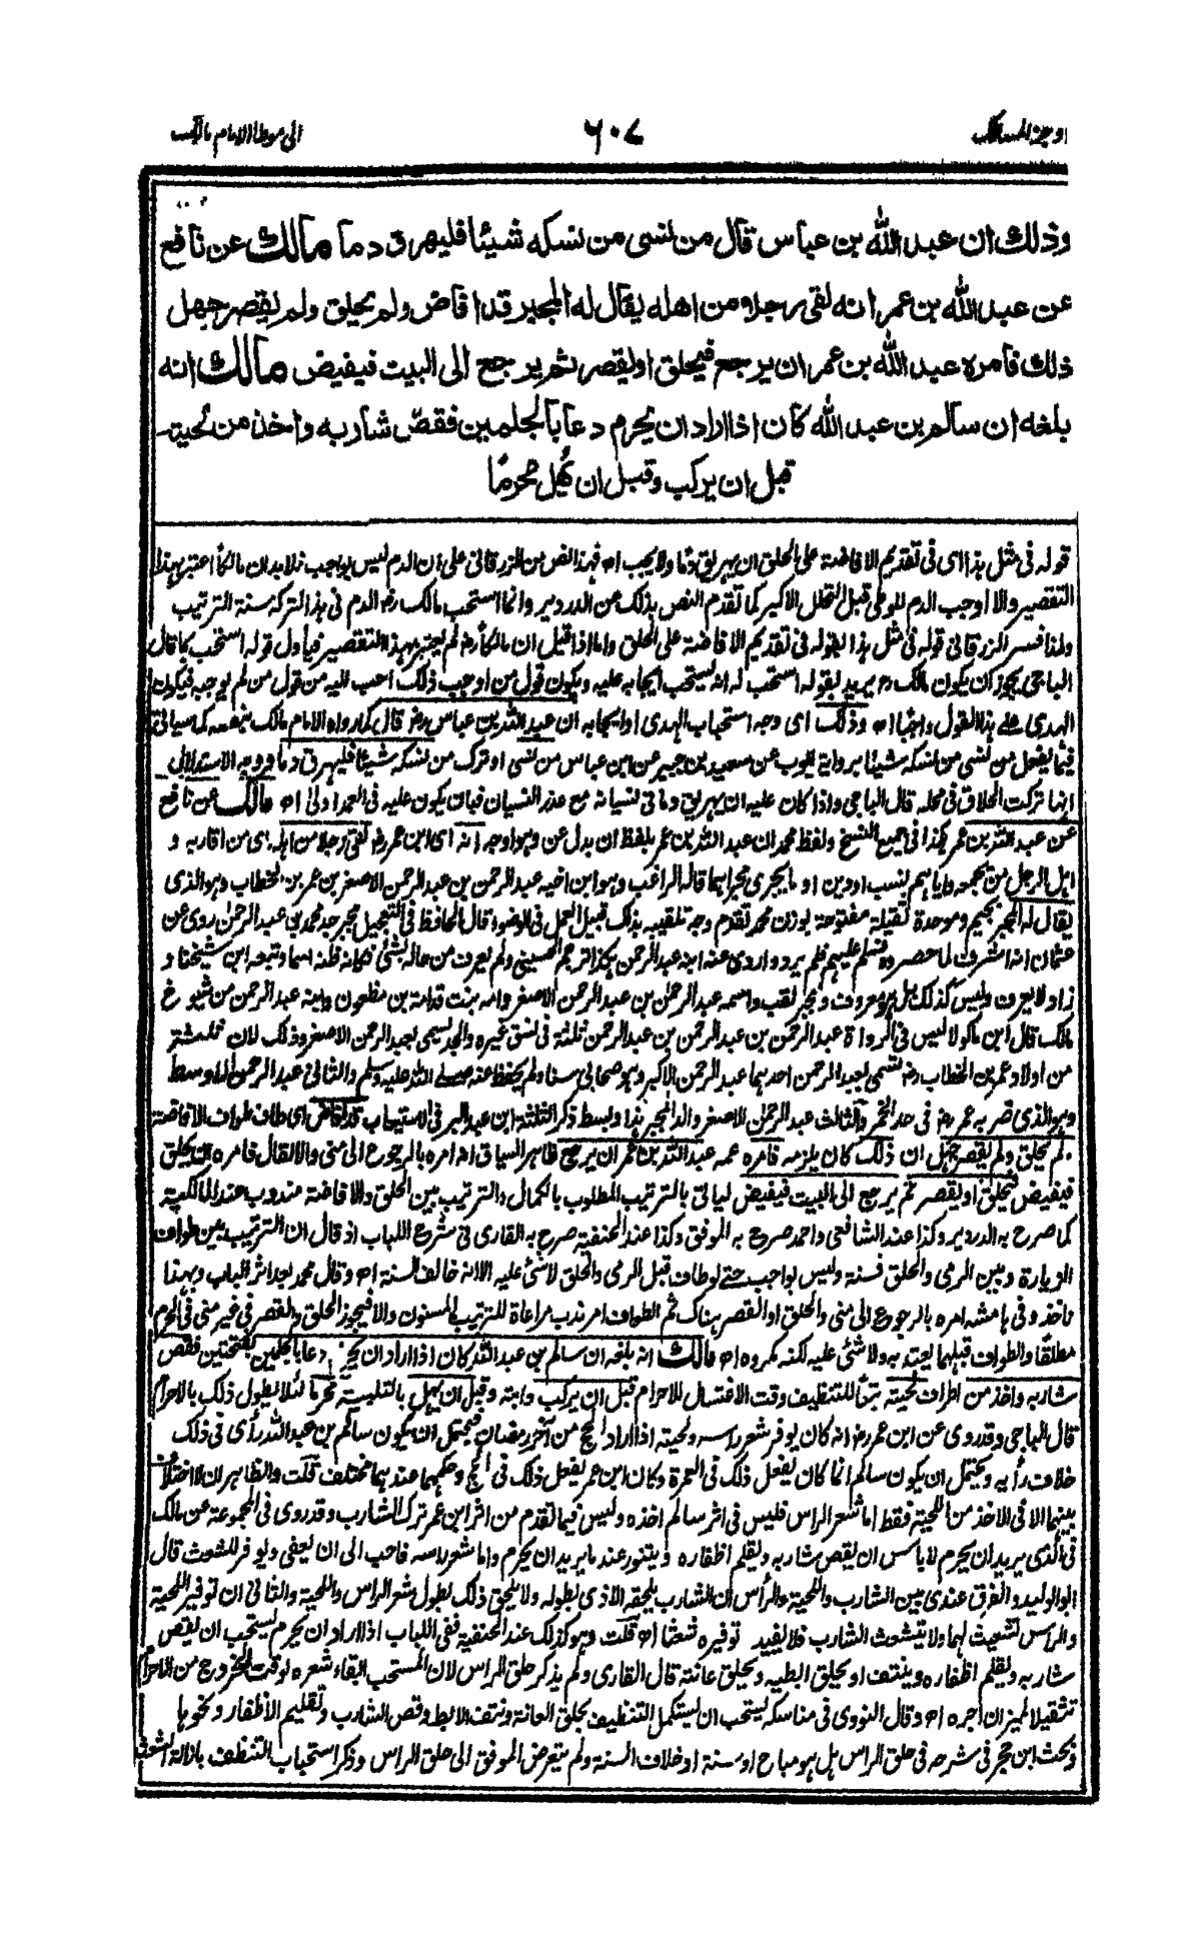 اوجز المسالك
٦٠٧
الى موطأ الامام مالك
وذلك ان عبد الله بن عباس قال من نسى من نسكه شيئا فليهرق دما مالك عن نافع
عن عبد الله بن عمر انه لقى رجلا من اهله يقال له المجبر قد افاض ولم يحلق ولم يقصر جهل
ذلك فامره عبد الله بن عمر ان يرجع فيحلق او يقصر ثم يرجع الى البيت فيفيض مالك انه
بلغه ان سالم بن عبد الله كان اذا اراد ان يحرم دعا بالجلمين فقصّ شاربه واخذ من لحيته
قبل ان يركب وقبل ان يُهل محرمًا
قوله فى مثل هذا اى فى تقديم الافاضة على الحلق ان يهريق دما ولا يجب اه فهذا نص من الزرقانى على ان الدم ليس بواجب فلا بد ان مالكا اعتبر بهذا
التقصير والا اوجب الدم للوطى قبل التحلل الاكبر كما تقدم النص بذلك عن الدردير وانما استحب مالك رم الدم فى هذا لتركه سنة الترتيب
ولذا فسر الزرقانى قوله فى مثل هذا بقوله فى تقديم الافاضة على الحلق واما اذا قيل ان مالكا رم لم يعتبر بهذا التقصير فيأول قوله استحب بما قال
الباجى يجوز ان يكون مالك رم يريد بقوله استحب له انه يستحب ايجابه عليه ويكون قول من اوجب ذلك احب اليه من قول من لم يوجبه فيكون
الهدى على هذا القول واجبا اه وذلك اى وجه استحباب الهدى او ايجابه ان عبد الله بن عباس رض قال كما رواه الامام مالك بنفسه كما سياتى
فيما يفعل من نسى من نسكه شيئا برواية ايوب عن سعيد بن جبير عن ابن عباس من نسى او ترك من نسكه شيئا فليهرق دما ووجه الاستدلال
انها تركت الحلاق فى محله قال الباجى واذا كان عليه ان يهريق دما فى نسيانه مع عذر النسيان فبان يكون عليه فى العمد اولى اه مالك عن نافع
عن عبد الله بن عمر هكذا فى جميع النسخ ولفظ محمد ان عبد الله بن عمر بلفظ ان بدل عن وهو اوجه انه اى ابن عمر رض لقى رجلا من اهله اى من اقاربه و
اهل الرجل من يجمعه واياهم نسب او دين او ما يجرى مجراهما قاله الراغب وهو ابن اخيه عبد الرحمن بن عبد الرحمن الاصغر بن عمر بن الخطاب وهو الذى
يقال له المجبر بجيم وموحدة ثقيلة مفتوحة بوزن محمد تقدم وجه تلقيبه بذلك قبيل العمل فى الوضوء قال الحافظ فى التعجيل مجبر جد محمد بن عبد الرحمن روى عن
عثمان انه اشرف لما حصروه فسلم عليهم فلم يردوا روى عنه ابنه عبد الرحمن هكذا ترجم الحسينى ولم يعرف من حاله بشئ فكانه ظنه اسما وتبعه ابن شيخنا و
زاد لا يعرف وليس كذلك بل هو معروف ومجبر لقب واسمه عبد الرحمن بن عبد الرحمن الاصغر وامه بنت قدامة بن مظعون وابنه عبد الرحمن من شيوخ
مالك قال ابن ماكولا ليس فى الرواة عبد الرحمن بن عبد الرحمن بن عبد الرحمن ثلثة فى نسق غيره والجد يسمى بعبد الرحمن الاصغر وذلك لان ثلثة
من اولاد عمر بن الخطاب رض تسمى بعبد الرحمن احدهما عبد الرحمن الاكبر وهو صحابى سنا ولم يحفظ عنه صلى الله عليه وسلم والثانى عبد الرحمن الاوسط
وهو الذى ضربه عمر رض فى حد الخمر والثالث عبد الرحمن الاصغر والد المجبر هذا وبسط ذكر الثلثة ابن عبد البر فى الاستيعاب قد افاض اى طاف طواف الافاضة
ولم يحلق ولم يقصر جهل ان ذلك كان يلزمه فامره عمه عبد الله بن عمر ان يرجع ظاهر السياق انه امره بالرجوع الى منى والا لقال فامره ان يحلق
فيفيض فيحلق او يقصر ثم يرجع الى البيت فيفيض ليأتى بالترتيب المطلوب بالكمال والترتيب بين الحلق والافاضة مندوب عند المالكية
كما صرح به الدردير وكذا عند الشافعى واحمد صرح به الموفق وكذا عند الحنفية صرح به القارى فى شرح اللباب اذ قال ان الترتيب بين طواف
الزيارة وبين الرمى والحلق فسنة وليس بواجب حتى لو طاف قبل الرمى والحلق لا شئ عليه الا انه خالف السنة اه وقال محمد بعد اثر الباب وبهذا
ناخذ وفى هامشه امره بالرجوع الى منى والحلق او القصر هناك ثم الطواف امر ندب مراعاة للترتيب المسنون والا فيجوز الحلق والقصر فى غير منى فى الحرم
مطلقا والطواف قبلهما يعتد به ولا شئ عليه لكنه مكروه اه مالك انه بلغه ان سالم بن عبد الله كان اذا اراد ان يحرم دعا بالجلمين بفتحتين فقص
شاربه واخذ من اطراف لحيته تتمما للتنظيف وقت الاغتسال للاحرام قبل ان يركب دابته وقبل ان يهل بالتلبية محرما لئلا يطول ذلك بالاحرام
قال الباجى وقد روى عن ابن عمر رض انه كان يوفر شعر راسه ولحيته اذا اراد الحج من آخر رمضان فيحتمل ان يكون سالم بن عبد الله رأى فى ذلك
خلاف رأيه ويحتمل ان يكون سالم انما كان يفعل ذلك فى العمرة وكان ابن عمر يفعل ذلك فى الحج وحكمهما عندهما مختلف قلت والظاهر ان لا اختلاف
بينهما الا فى الاخذ من اللحية فقط اما شعر الراس فليس فى اثر سالم اخذه وليس فيما تقدم من اثر ابن عمر ترك الشارب وقد روى فى المجموعة عن مالك
فى الذى يريد ان يحرم لا باس ان يقص شاربه ويقلم اظفاره ويتنور عند ما يريد ان يحرم واما شعر راسه فاحب الى ان يعفى ويوفر للشعث قال
ابو الوليد والفرق عندى بين الشارب واللحية والرأس ان الشارب يلحقه الاذى بطوله ولا يلحق ذلك بطول شعر الراس واللحية والثانى ان توفير اللحية
والراس تشعيث لهما ولا يتشعث الشارب فلا يفيد توفيره شعثا اه قلت وهو كذلك عند الحنفية ففى اللباب اذا اراد ان يحرم يستحب ان يقص
شاربه ويقلم اظفاره وينتف او يحلق ابطيه ويحلق عانته قال القارى ولم يذكر حلق الراس لان المستحب القاء شعره لوقت الخروج من الاحرام
تثقيلا لميزان اجره اه وقال النووى فى مناسكه يستحب ان يستكمل التنظيف بحلق العانة ونتف الابط وقص الشارب وتقليم الاظفار ونحوها
وبحث ابن حجر فى شرحه فى حلق الراس هل هو مباح او سنة او خلاف السنة ولم يتعرض الموفق الى حلق الراس وذكر استحباب التنظف بازالة الشعث